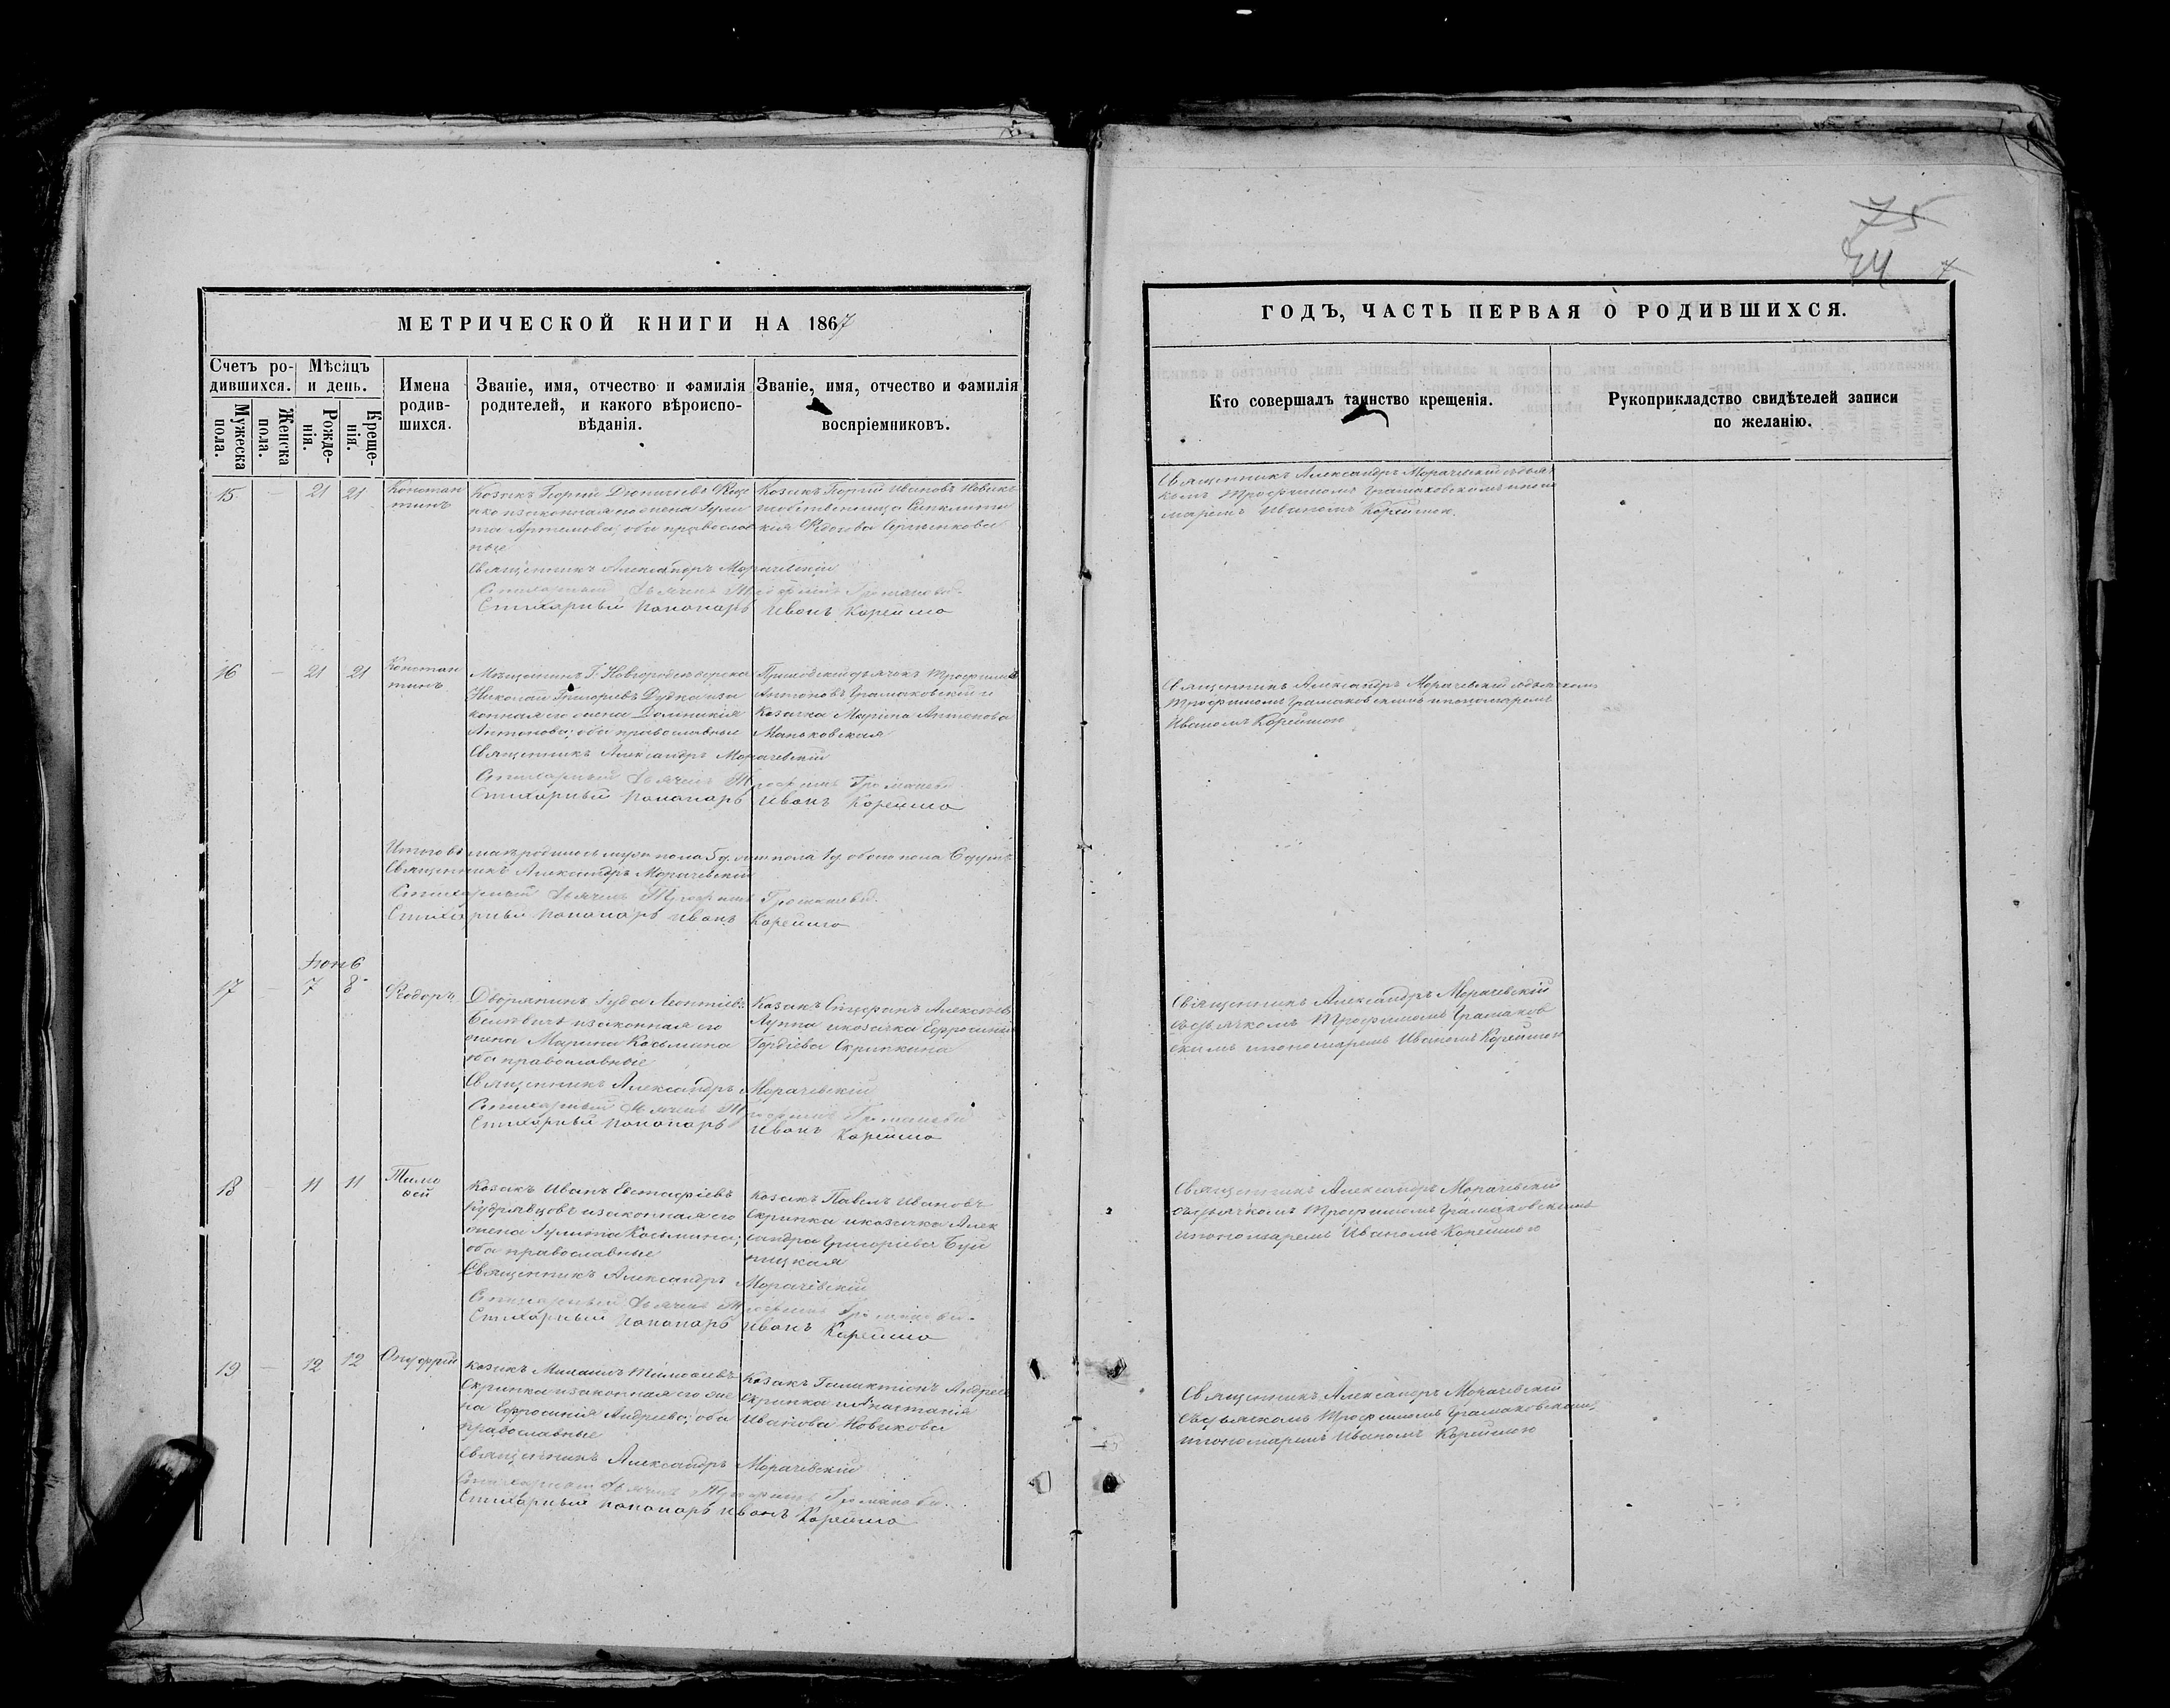 МЕТРИЧЕСКОЙ КНИГИ НА 1867
Счетъ ро-
дившихся.
Мѣсяцъ
и день.
Мужеска
пола.
Женска
пола.
Рожде-
нія.
Креще-
нія.
Имена
родив-
шихся.
Званіе, имя, отчество и фамилія
родителей, и какого вѣроиспо-
вѣданія.
Званіе, имя, отчество и фамилія
воспріемниковъ.
15 — 21 21
Констан
тинъ
Козакъ Георгій
законная его жена
та Артемова, оба православ
ные
Козакъ Георгій Ивановъ Новик
Священникъ Александръ Морачевскій
Стихарный Дьячекъ
Стихарный Пономарь Иванъ Корейша
16 — 21 21
Констан
тинъ
Мѣщанинъ Г. Новгородсѣверска
Николай Григорьевъ Дудка и за
конная его жена Домникія
Антонова; оба православные
Приходскій дьячокъ Трофимъ
Антоновъ Грамаковскій и
Козачка Марина Антонова
Маньковская
Священникъ Александръ Морачевскій
Стихарный Дьячекъ Трофимъ
Стихарный Пономарь Иванъ Корейша
Итого въ маѣ родилось муж пола 5 д. жен пола 1 д. обоего пола 6 душъ
Священникъ Александръ Морачевскій
Стихарный Дьячекъ Трофимъ
Стихарный Пономарь Иванъ Корейша
Іюнь
17 — 7 8
Ѳеодоръ
Дворянинъ Іуда Леонтіевъ
и законная его
жена Марина Козьмина
оба православные
Козакъ Стефанъ Алексѣевъ
Луппа и козачка Ефросинія
Гордіева Скрипкина
Священникъ Александръ Морачевскій
Стихарный Дьячекъ Трофимъ
Стихарный Пономарь Иванъ Корейша
18 — 11 11
Тимо
ѳей
Козакъ Иванъ Евстафіевъ
Кудрявцовъ и законная его
жена Іулита Козьмина;
оба православные
Козакъ Павелъ Ивановъ
Скрипка и козачка Алек
сандра Григоріева Буй
ницкая
Священникъ Александръ Морачевскій
Стихарный Дьячекъ Трофимъ
Стихарный Пономарь Иванъ Корейша
19 — 12 12
Онуфрій
Козакъ Михаилъ Тимоѳеевъ
Скрипка и законная его же
на Ефросинія Андреева; оба
православные
Козакъ Галактіонъ Андреев
Скрипка и Анастасія
Иванова Новикова
Священникъ Александръ Морачевскій
Стихарный Дьячекъ Трофимъ
Стихарный Пономарь Иванъ Корейша
75
ГОДЪ, ЧАСТЬ ПЕРВАЯ О РОДИВШИХСЯ.
Кто совершалъ таинство крещенія.
Рукоприкладство свидѣтелей записи
по желанію.
Священникъ Александръ Морачевскій съ дьяч
комъ Трофимомъ Грамаковскимъ и поно
маремъ Иваномъ Корейшою.
Священникъ Александръ Морачевскій съ дьячкомъ
Трофимомъ Грамаковскимъ и пономаремъ
Иваномъ Корейшою
Священникъ Александръ Морачевскій
съ дьячкомъ Трофимомъ Грамаков
скимъ и пономаремъ Иваномъ Корейшою
Священникъ Александръ Морачевскій
съ дьячкомъ Трофимомъ Грамаковскимъ
и пономаремъ Иваномъ Корейшою
Священникъ Александръ Морачевскій
съ дьячкомъ Трофимомъ Грамаковскимъ
и пономаремъ Иваномъ Корейшою